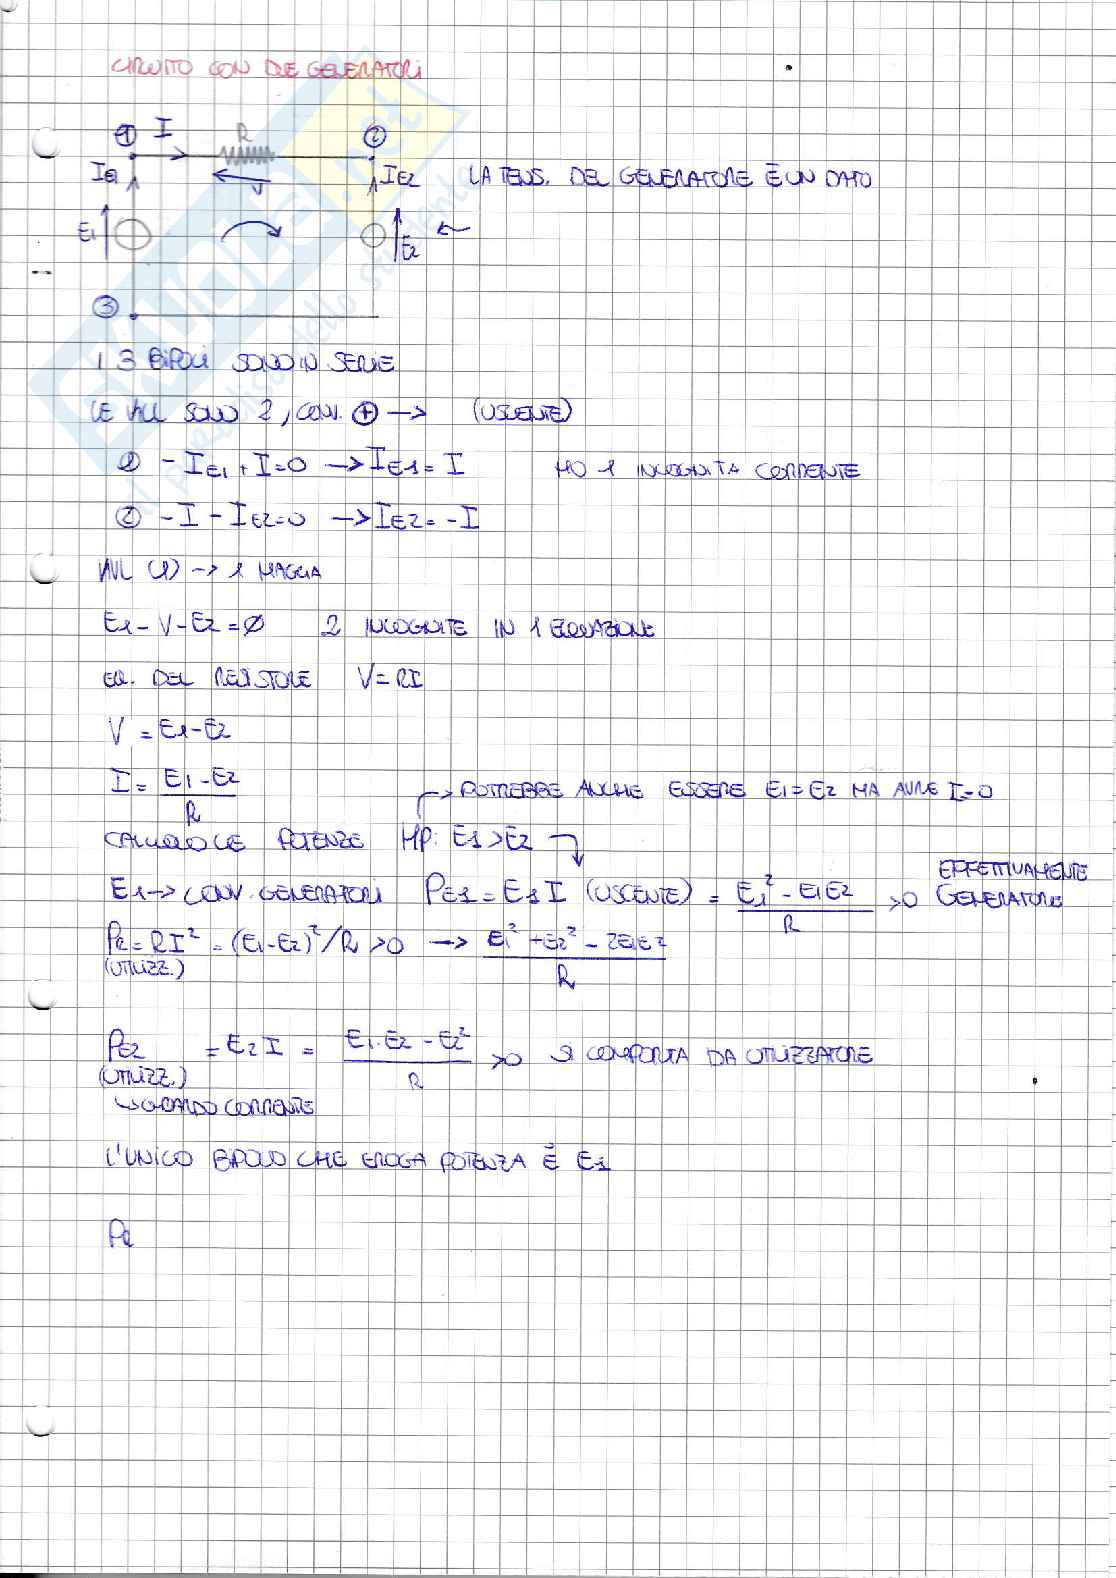 CIRCUITO CON DUE GENERATORI
① I R ②
IE1 V IE2 LA TENS. DEL GENERATORE È UN DATO
E1 E2
③
I 3 BIPOLI SONO IN SERIE
LE KCL SONO 2, CONV. ⊕ → (USCENTE)
① -IE1 + I = 0 → IE1 = I HO 1 INCOGNITA CORRENTE
② -I - IE2 = 0 → IE2 = -I
KVL (1) → 1 MAGLIA
E1 - V - E2 = Ø 2 INCOGNITE IN 1 EQUAZIONE
EQ. DEL RESISTORE V = RI
V = E1 - E2
I = (E1 - E2)/R
→ POTREBBE ANCHE ESSERE E1 = E2 MA AVRE I = 0
CALCOLO LE POTENZE HP: E1 > E2
E1 → CONV. GENERATORI PE1 = E1 I (USCENTE) = (E1² - E1E2)/R > 0 EFFETTIVAMENTE GENERATORE
PR = RI² = (E1 - E2)²/R > 0 → (E1² + E2² - 2E1E2)/R
(UTILIZZ.)
PE2 = E2 I = (E1·E2 - E2²)/R > 0 SI COMPORTA DA UTILIZZATORE
(UTILIZZ.)
↳ CORRENTE
L'UNICO BIPOLO CHE EROGA POTENZA È E1
PR